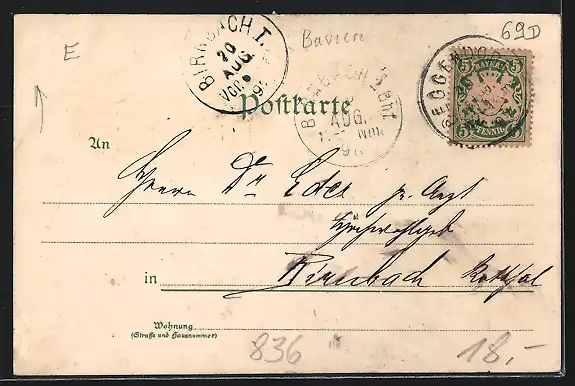 E
BIRNBACH I.
20
AUG
Vor.
9
Bavern
69D
BIRNBACH Bhf.
AUG.
Nm.
9
DEGGENDORF
5 BAYERN 5
5 PFENNIG 5
Postkarte
An
Herrn Dr Eder pr. Arzt
Hochwohlgeb
in Birnbach Rotthal
Wohnung
(Straße und Hausnummer)
836
18,-